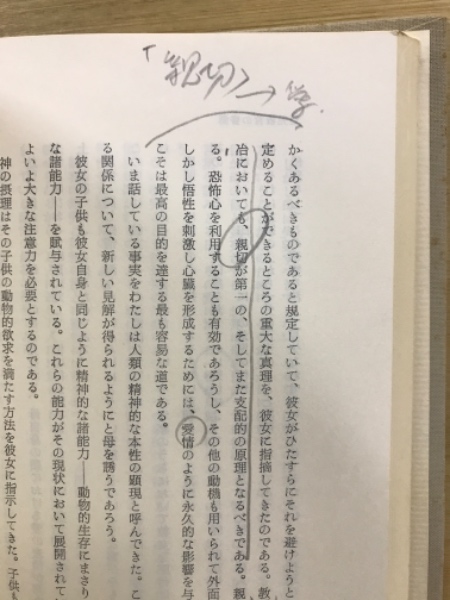 「親切」→学.
かくあるべきものであると規定していて、彼女がひたすらにそれを避けようと
定めることができるところの重大な真理を、彼女に指摘してきたのである。教
冶においても、親切が第一の、そしてまた支配的の原理となるべきである。親
る。恐怖心を利用することも有効であろうし、その他の動機も用いられて外面
しかし悟性を刺激し心臓を形成するためには、愛情のように永久的な影響を与
こそは最高の目的を達する最も容易な道である。
いま話している事実をわたしは人類の精神的な本性の顕現と呼んできた。こ
る関係について、新しい見解が得られるようにと母を誘うであろう。
彼女の子供も彼女自身と同じように精神的な諸能力――動物的生存にまさり
な諸能力――を賦与されている。これらの能力がその現状において展開されて
よいよ大きな注意力を必要とするのである。
神の摂理はその子供の動物的欲求を満たす方法を彼女に指示してきた。子供も